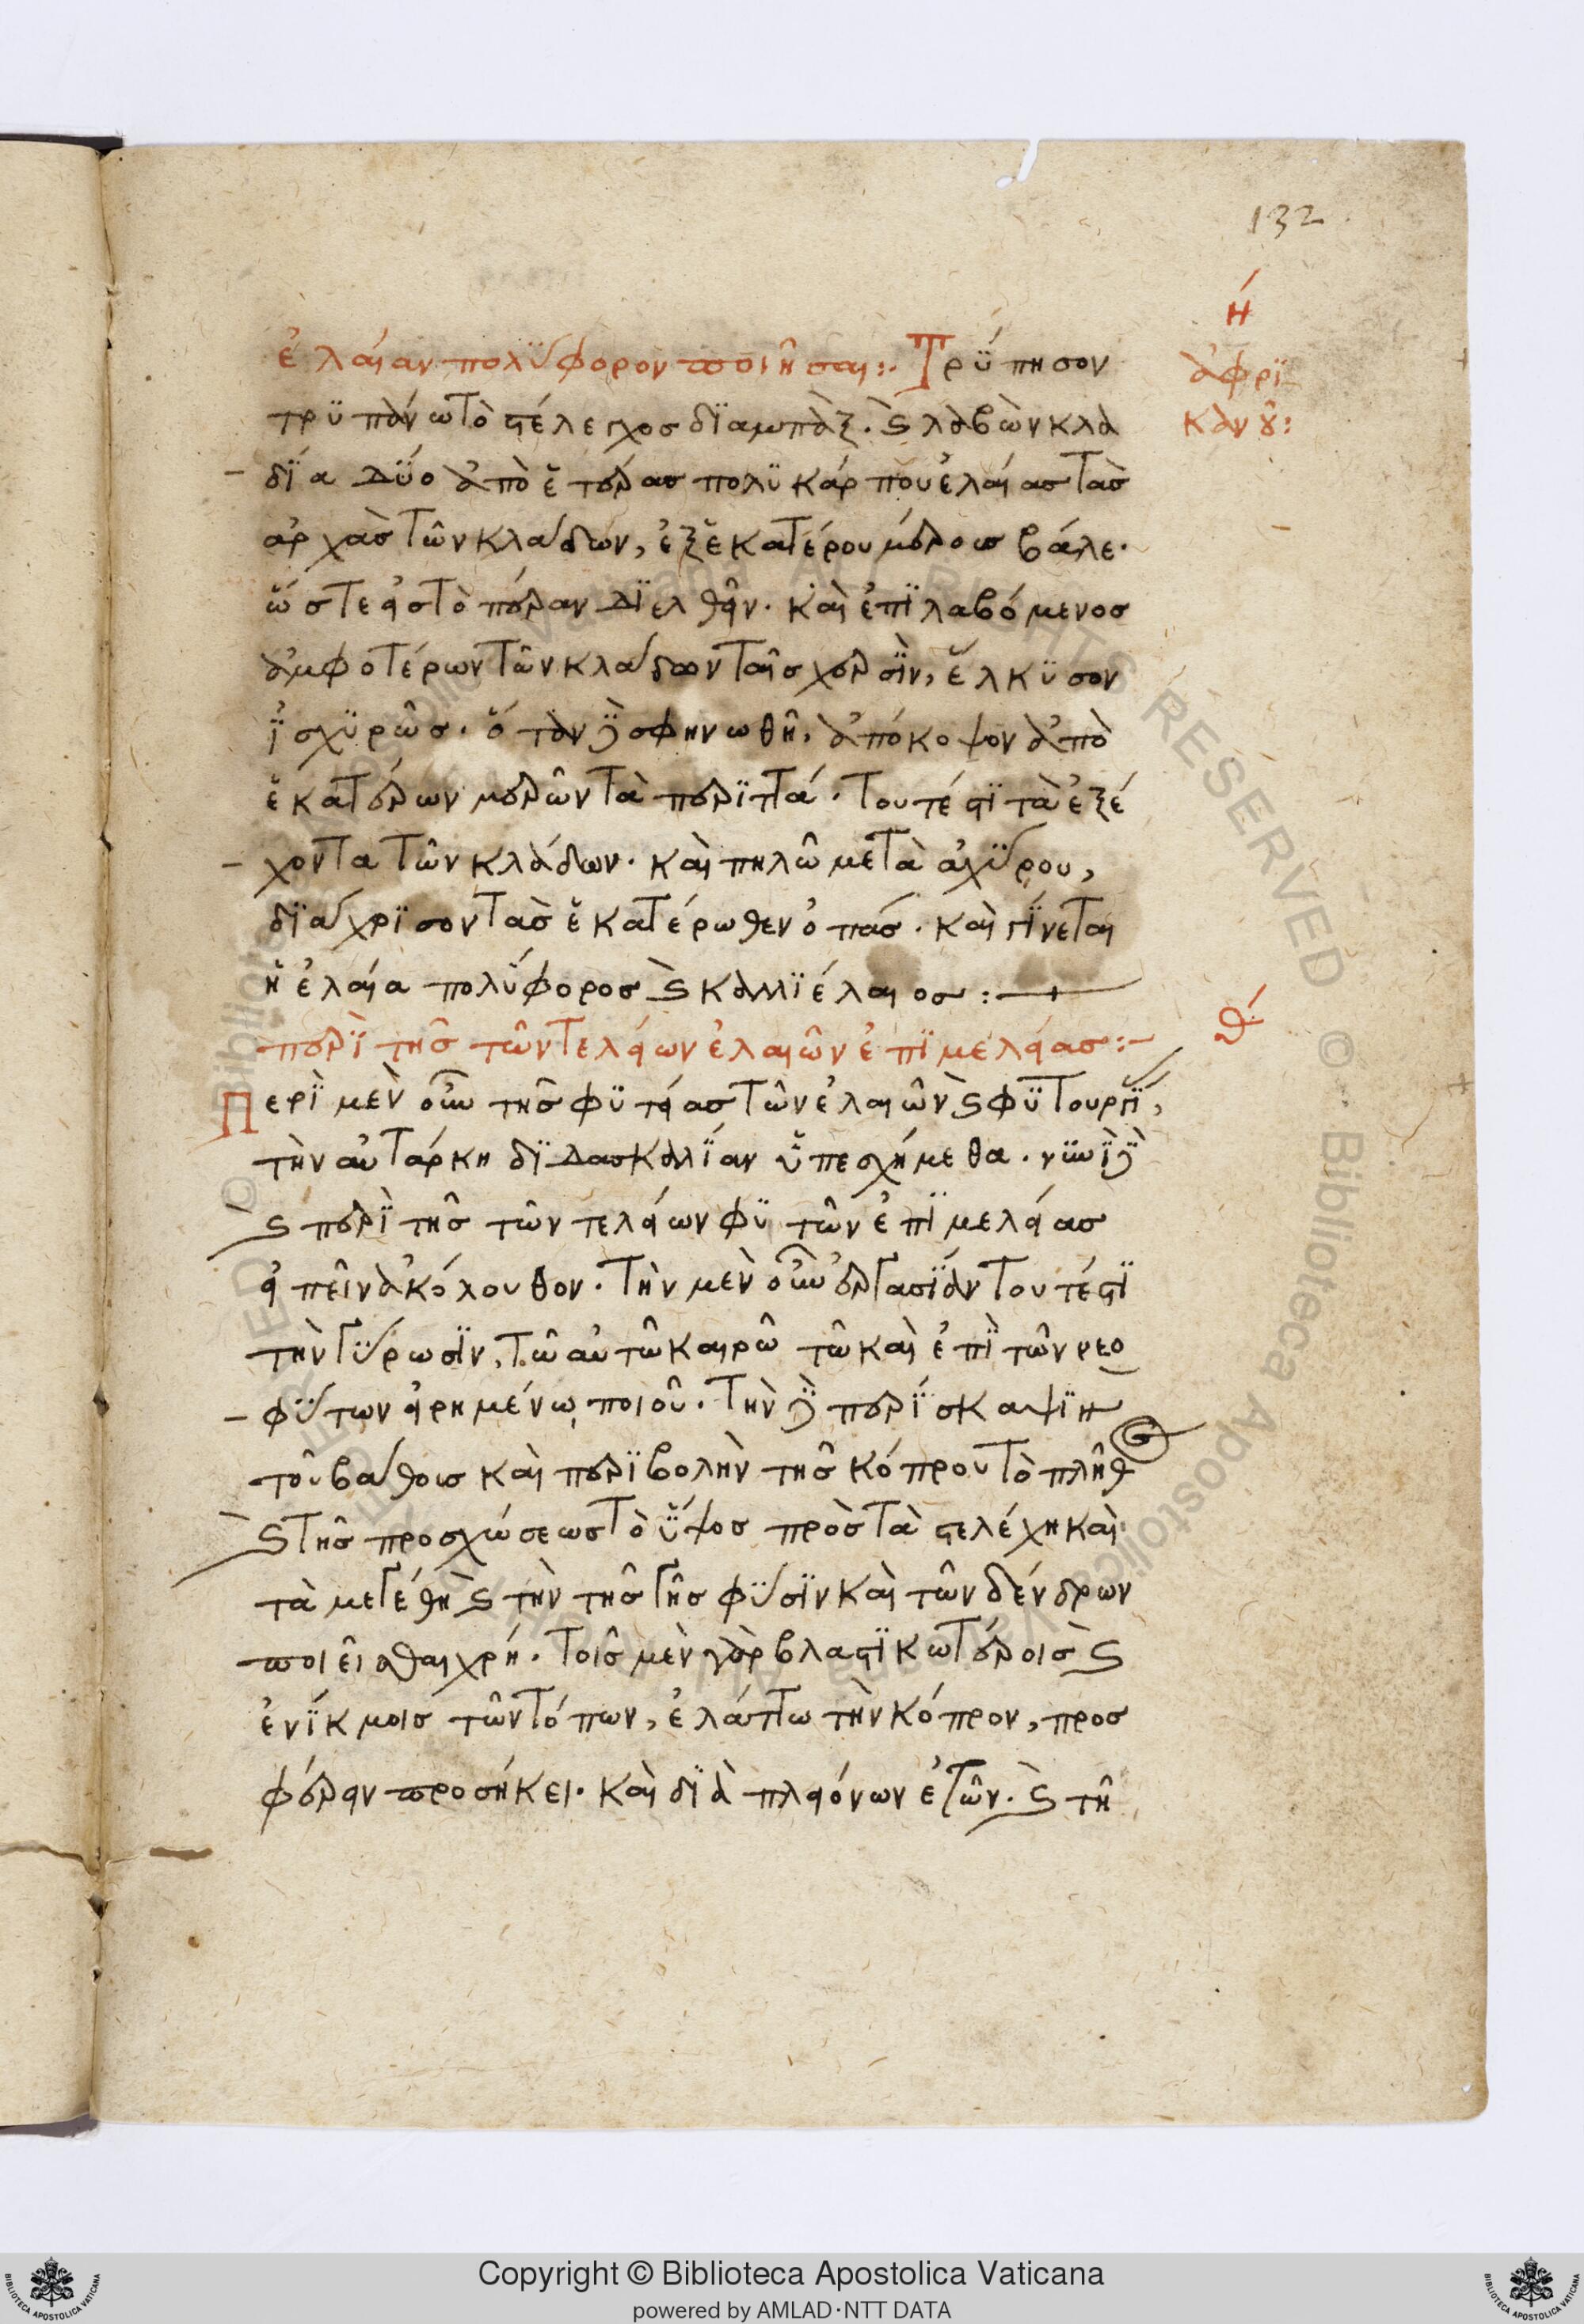 132
ἐλαίαν πολϋφορον ποιῆσαι:· Τρϋπησον
τρϋπάνω τὸ στέλεχος δϊαμπὰξ. καὶ λαβὼν κλα
δΐα δϋο ἀπὸ ἑτέρας πολϋκάρπου ἐλαίας τὰς
ἀρχὰς τῶν κλάδων, ἐξ ἑκατέρου μέρους βάλε·
ὥστε εἰς τὸ πέραν δϊελθεῖν. καὶ ἐπϊλαβόμενος
ἀμφοτέρων τῶν κλάδων ταῖς χερσῒν, ἕλκϋσον
ἰσχϋρῶς. ὅταν δὲ σφηνωθῆ, ἀπόκοψον ἀπὸ
ἑκατέρων μερῶν τὰ περϊττά. τουτέστϊ τὰ ἐξέ
χοντα τῶν κλάδων. καὶ πηλῶ μετὰ ἀχϋρου,
δϊάχρϊσον τὰς ἑκατέρωθεν ὀπάς. καὶ γΐνεται
ἡ ἐλαία πολϋφορος καὶ καλλϊέλαιος:
ή
ἀφρϊ
κανοῦ:
περῒ τῆς τῶν τελείων ἐλαιῶν ἐπϊμελείας:
θ´
Περῒ μὲν οὖν τῆς φϋτείας τῶν ἐλαιῶν καὶ φϋτουργΐ,
τὴν αὐτάρκη δϊδασκαλΐαν ὑπεσχήμεθα. νυνῒ δὲ
καὶ περῒ τῆς τῶν τελείων φϋτῶν ἐπϊμελείας
εἰπεῖν ἀκόλουθον. τὴν μὲν οὖν ἐργασΐαν τουτέστϊ
τὴν γϋρωσϊν, τῶ αὐτῶ καιρῶ τῶ καὶ ἐπῒ τῶν νεο
φϋτων εἰρημένω, ποιοῦ. τὴν δὲ περΐσκαψϊν
τοῦ βάθους καὶ περϊβολὴν τῆς κόπρου τὸ πλῆθος
καὶ τῆς προσχώσεως τὸ ὕψος πρὸς τὰ στελέχη καὶ
τὰ μεγέθη καὶ τὴν τῆς γῆς φϋσϊν καὶ τῶν δένδρων
ποιεῖσθαι χρή. τοῖς μὲν γὰρ βλαστϊκωτέροις καὶ
ἐνΐκμοις τῶν τόπων, ἐλάττω τὴν κόπρον, προσ
φέρειν προσήκει. καὶ δϊὰ πλειόνων ἐτῶν. καὶ τῆ
Copyright © Biblioteca Apostolica Vaticana
powered by AMLAD·NTT DATA